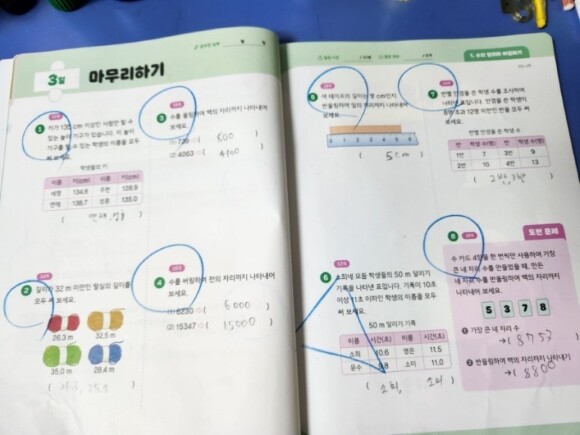 3일 마무리하기
1 키가 135 cm 이상인 사람만 탈 수
있는 놀이 기구가 있습니다. 이 놀이
기구를 탈 수 있는 학생의 이름을 모두
써 보세요.
학생들의 키
이름 키(cm) 이름 키(cm)
134.8 128.9
138.7 135.0
2 길이가 32 m 미만인 털실의 길이를
모두 써 보세요.
26.3 m 32.5 m
35.0 m 28.4 m
3 수를 올림하여 백의 자리까지 나타내어
보세요.
(1) 739
(2) 4063 ( 4100 )
4 수를 버림하여 천의 자리까지 나타내어
보세요.
(1) 6230 ( 6000 )
(2) 15347 ( 15000 )
1. 수의 범위와 어림하기
5 색 테이프의 길이는 몇 cm인지
반올림하여 일의 자리까지 나타내어
보세요.
0 1 2 3 4 5 6
( 5 cm )
6 소희네 모둠 학생들의 50 m 달리기
기록을 나타낸 표입니다. 기록이 10초
이상 11초 이하인 학생의 이름을 모두
써 보세요.
50 m 달리기 기록
이름 시간(초) 이름 시간(초)
소희 10.6 영은 11.5
윤수 9.8 소미 11.0
( 소희, 소미 )
7 반별 안경을 쓴 학생 수를 조사하여
나타낸 표입니다. 안경을 쓴 학생이
8명 초과 12명 미만인 반을 모두 써
보세요.
반별 안경을 쓴 학생 수
반 학생 수(명) 반 학생 수(명)
1반 7 3반 9
2반 10 4반 13
( 2반, 3반 )
8 도전 문제
수 카드 4장을 한 번씩만 사용하여 가장
큰 네 자리 수를 만들었을 때, 만든
네 자리 수를 반올림하여 백의 자리까지
나타내어 보세요.
5 3 7 8
❶ 가장 큰 네 자리 수
→ ( 8753
❷ 반올림하여 백의 자리까지 나타내기
→ ( 8800